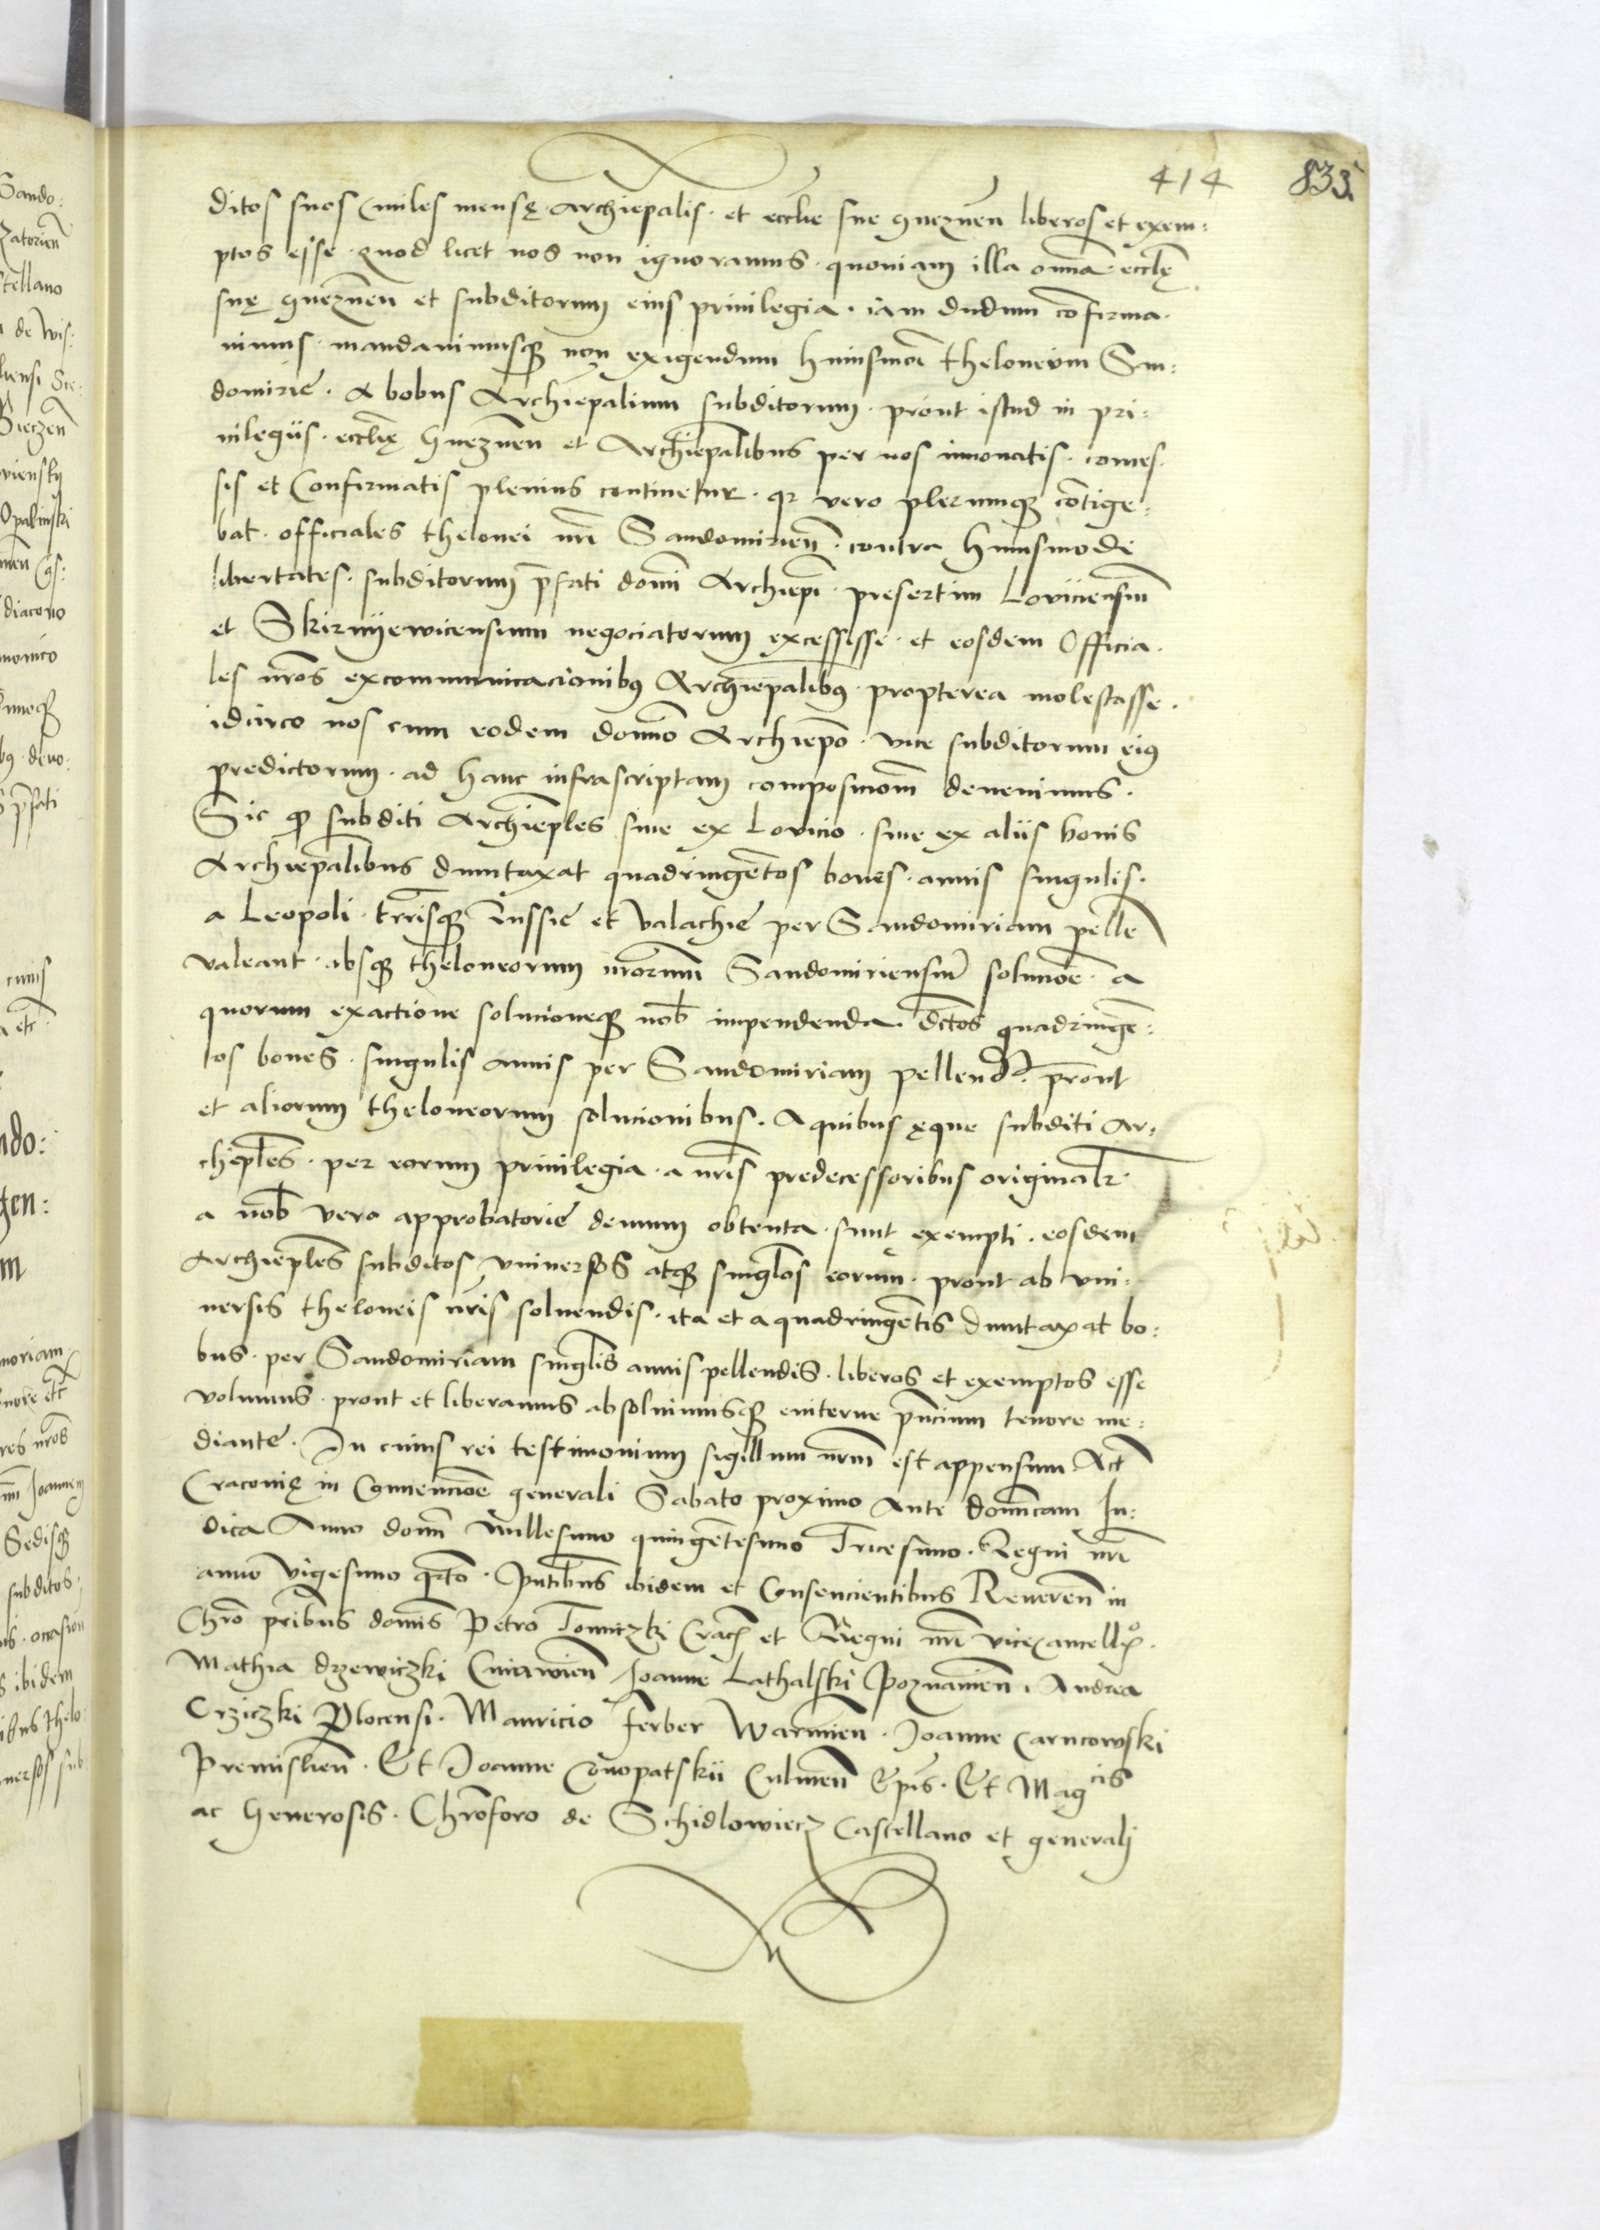 414 833.
ditos suos Cmiles mensę Archiepalis. et eccl̄ie sue gneznen̄ liberos et exem:
ptos esse. quod licet nos non ignoramus. quoniam illa om̄a eccl̄ę
suę gneznen̄ et subditorum eius priuilegia. iam dudum cōfirma.
uimus. mandauimusq; non exigendum huiusmōi theloneum San:
domirie. A bobus Archiepalium subditorum. prout istud in pri:
uilegiis. eccl̄ię Gneznen̄ et Archiepalibus per nos innouatis. conces.
sis et Confirmatis plenius continetur. qr vero plerumq; cōtige:
bat. officiales thelonei nr̄i Sandomirien̄. contra huiusmodi
libertates. subditorum p̄fati domī Archiepī. presertim Louiciensiū
et Skirnyewicensium negociatorum excessisse. et eosdem Officia.
les nr̄os excommunicacionibus Archiepalibus. propterea molestasse.
idcirco nos cum eodem domīo Archiepō. vice subditorum eius
predictorum. ad hanc infrascriptam composicionē deuenimus.
Sic q̄ subditi Archiepl̄es siue ex Louicio. siue ex aliis bonis
Archiepalibus dumtaxat quadringētos boues. annis singulis.
a Leopoli. tr̄risq; Russie et Valachie per Sandomiriam pellē
valeant. absq; theloneorum nr̄orum Sandomiriensiū soluciōe. a
quorum exactione solucioneq; nob̄ impendenda. dc̄tos quadringē:
tos boues. singulis annis per Sandomiriam pellend. prout
et aliorum theloneorum solucionibus. A quibus ęque subditi Ar:
chiepl̄es. per eorum priuilegia. a nr̄is predecessoribus originalr̄.
a nob̄ vero approbatorie demum obtenta. sunt exempti. eosdem
Archiepl̄es subditos vniuersos atq; singl̄os eorum. prout ab vni:
uersis theloneis nr̄is soluendis. ita et a quadringētis dumtaxat bo:
bus. per Sandomiriam singl̄is annis pellendis. liberos et exemptos esse
volumus. prout et liberamus absoluimusq; euiterne p̄ncium tenore me:
diante. In cuius rei testimonium sigillum nr̄m est appensum. Act
Cracouię in Conuenciōe generali Sabato proximo Ante domīcam Iu:
dica Anno domī Millesimo quingētesimo Tricesimo. Regni nr̄i
anno Vigesimo qrto. Pn̄tibus ibidem et Consencientibus Reueren̄ in
Chr̄o pr̄ibus domīs Petro Tomiczki Crac̄ et Regni nr̄i vicecancell.
Mathia drzewiczki Cuiawien̄ Joanne Lathalski Poznanien̄. Andrea
Crziczki Plocensi. Mauricio Ferber Warmien̄. Joanne Carncowski
Premislien̄. Et Joanne Conopatskii Culmen̄ Ep̄is. Et Mag cis
ac Generosis. Chr̄oforo de Schidlowiecz Castellano et generalj